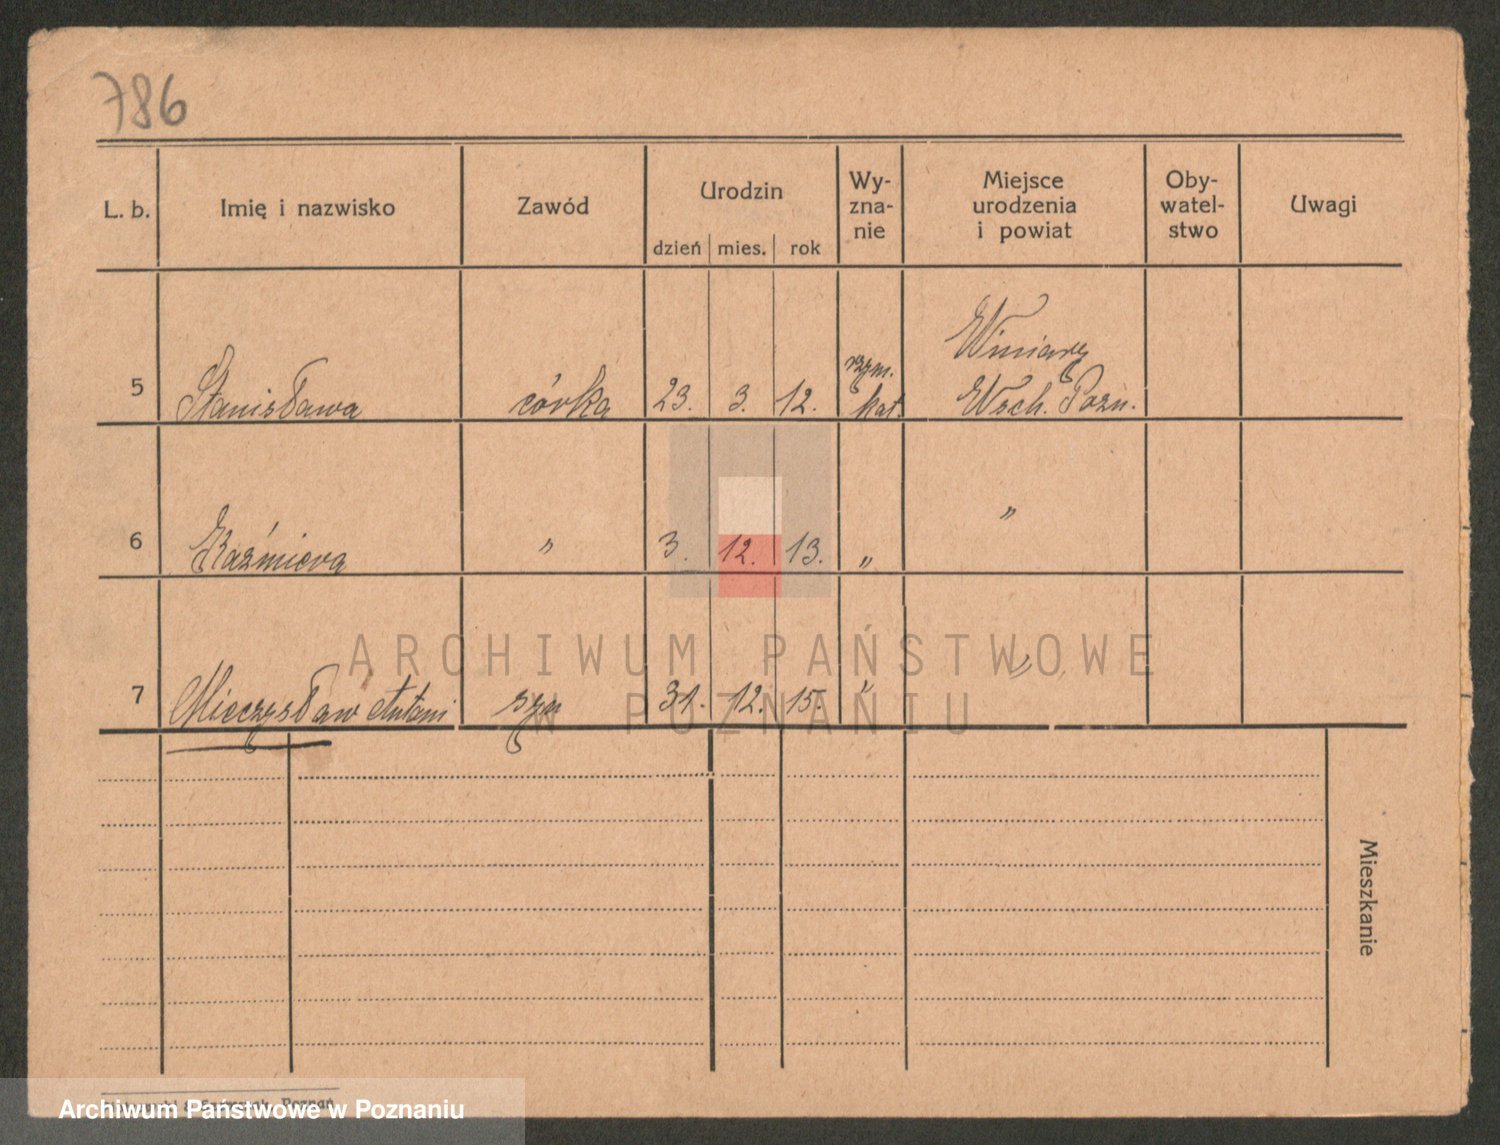 786
L. b. Imię i nazwisko Zawód Urodzin Wy-zna-nie Miejsce urodzenia i powiat Oby-watel-stwo Uwagi
dzień mies. rok
Winiary
5 Stanisława córka 23. 3. 12. rzym. kat. Wsch. Pozn.
6 Kaźmiera " 3. 12. 13. " "
7 Mieczysław Antoni syn 31. 12. 15. " "
Mieszkanie
ARCHIWUM PAŃSTWOWE
W POZNANIU
Poznań
Archiwum Państwowe w Poznaniu